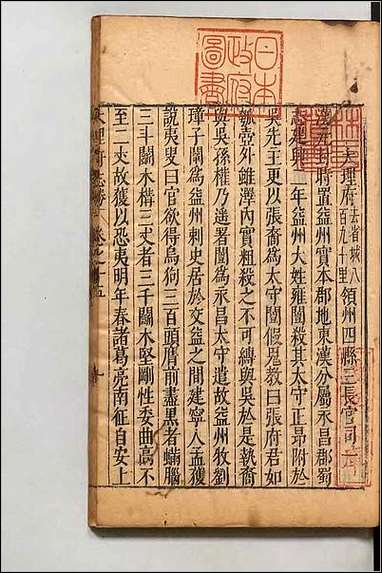 日本
政府
圖書
大理府去省城八
百九十里領州四縣三長官司一古
漢元封時置益州實本郡地東漢分屬永昌郡蜀
志建興 年益州大姓雍闓殺其太守正昂附於
吳先主更以張裔爲太守闓假鬼教曰張府君如
瓠壺外雖澤內實粗殺之不可縛與吳於是執裔
與吳孫權乃遥署闓爲永昌太守遣故益州牧劉
璋子闡爲益州刺史居於交益之間建寧人孟獲
説夷叟曰官欲得烏狗三百頭膺前盡黒者螨腦
三斗闘木構三丈者三千闘木堅剛性委曲高不
至二丈故獲以恐夷明年春諸葛亮南征自安上